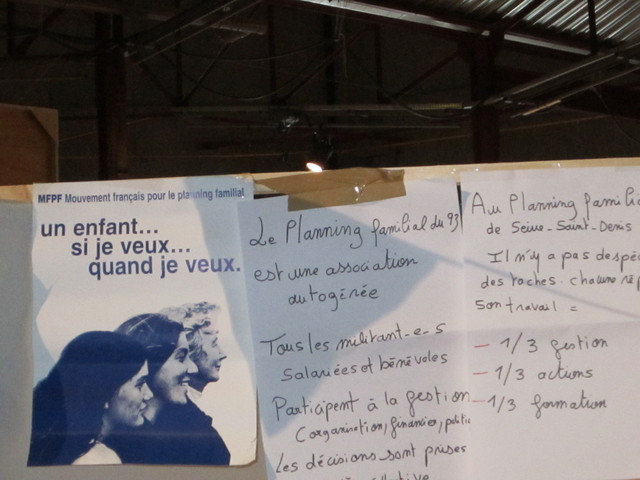 MFPF Mouvement français pour le planning familial
un enfant...
si je veux...
quand je veux.
Le Planning familial du 93
est une association
autogérée
Tous les militant-e-s
Salariées et bénévoles
Participent à la gestion
(organisation, finances,
Les décisions sont prises
Au Planning
de Seine-Saint-Denis
Il n'y a pas de
des taches. chacune
son travail =
— 1/3 gestion
— 1/3 actions
— 1/3 formation